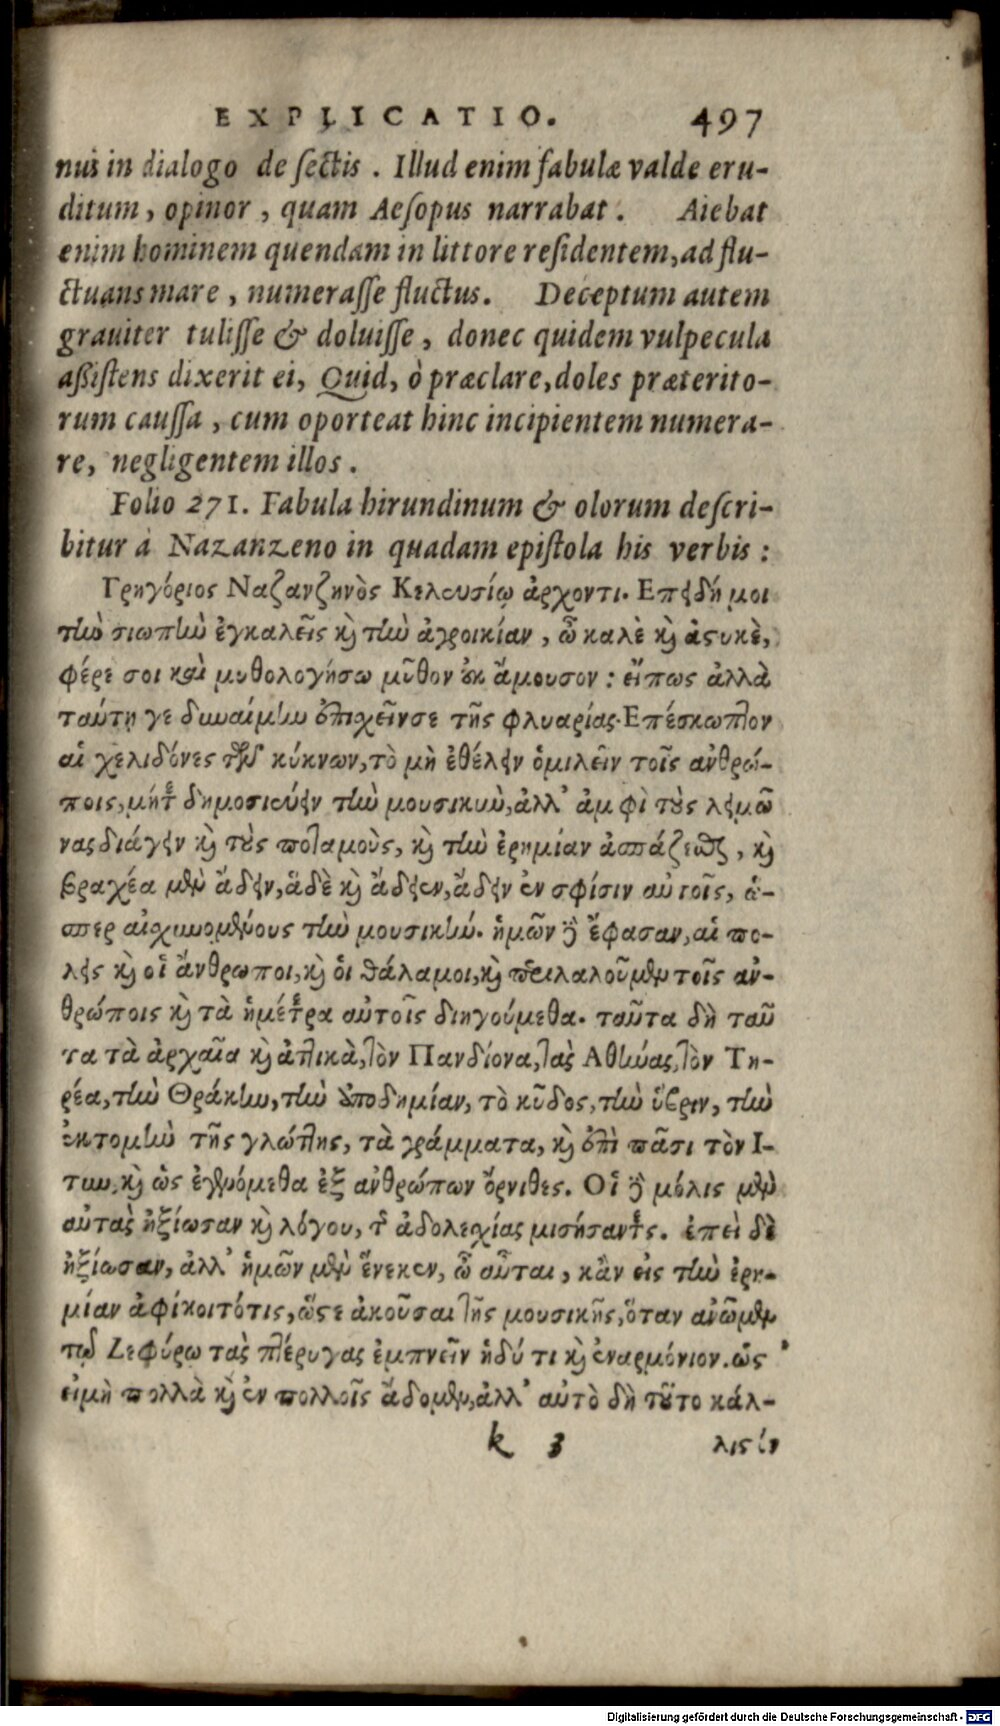 EXPLICATIO. 497
nus in dialogo de sectis. Illud enim fabulæ valde eru-
ditum, opinor, quam Aesopus narrabat. Aiebat
enim hominem quendam in littore residentem, ad flu-
ctuans mare, numerasse fluctus. Deceptum autem
grauiter tulisse & doluisse, donec quidem vulpecula
aßistens dixerit ei, Quid, ò præclare, doles præterito-
rum caussa, cum oporteat hinc incipientem numera-
re, negligentem illos.
Folio 271. Fabula hirundinum & olorum descri-
bitur à Nazanzeno in quadam epistola his verbis:
Γρηγόριος Ναζανζηνὸς Κελευσίῳ ἄρχοντι. Επειδή μοι
τὴν σιωπὴν ἐγκαλεῖς καὶ τὴν ἀγροικίαν, ὦ καλὲ καὶ ἀστυκὲ,
φέρε σοι καὶ μυθολογήσω μῦθον οὐκ ἄμουσον: εἴπως ἀλλὰ
ταύτη γε δυναίμην ἐπιχεῖνσε τῆς φλυαρίας. Επέσκωπτον
αἱ χελιδόνες τῶν κύκνων, τὸ μὴ ἐθέλειν ὁμιλεῖν τοῖς ἀνθρώ-
ποις, μήτε δημοσιεύειν τὴν μουσικὴν, ἀλλ’ ἀμφὶ τοὺς λειμῶ
νας διάγειν καὶ τοὺς ποταμοὺς, καὶ τὴν ἐρημίαν ἀσπάζεσθαι, καὶ
βραχέα μὲν ἄδειν, ἅδὲ καὶ ἄδειεν, ἄδειν ἐν σφίσιν αὐτοῖς, ὥ-
σπερ αἰσχυνομένους τὴν μουσικήν. ἡμῶν δὲ ἔφασαν, αἱ πό-
λεις καὶ οἱ ἄνθρωποι, καὶ οἱ θάλαμοι, καὶ περιλαλοῦμεν τοῖς ἀν-
θρώποις καὶ τὰ ἡμέτερα αὐτοῖς διηγούμεθα. ταῦτα δὴ ταῦ
τα τὰ ἀρχαῖα καὶ ἀττικὰ, τὸν Πανδίονα, τὰς Αθήνας, τὸν Τη-
ρέα, τὴν Θράκην, τὴν ἀποδημίαν, τὸ κῦδος, τὴν ὕβριν, τὴν
ἐκτομὴν τῆς γλώττης, τὰ γράμματα, καὶ ἐπὶ πᾶσι τὸν Ι-
τυν, καὶ ὡς ἐγενόμεθα ἐξ ἀνθρώπων ὄρνιθες. Οἱ δὲ μόλις μὲν
αὐτὰς ἠξίωσαν καὶ λόγου, τῆς ἀδολεσχίας μισήσαντες. ἐπεὶ δὲ
ἠξίωσαν, ἀλλ’ ἡμῶν μὲν ἕνεκεν, ὦ αὗται, κἂν εἰς τὴν ἐρη-
μίαν ἀφίκοιτό τις, ὥστε ἀκοῦσαι τῆς μουσικῆς, ὅταν ἀνῶμεν
τῷ Ζεφύρῳ τὰς πτέρυγας ἐμπνεῖν ἡδύ τι καὶ ἐναρμόνιον. ὡς
εἰμὴ πολλὰ καὶ ἐν πολλοῖς ἄδομεν, ἀλλ’ αὐτὸ δὴ τοῦτο κάλ-
k 3 λιστον